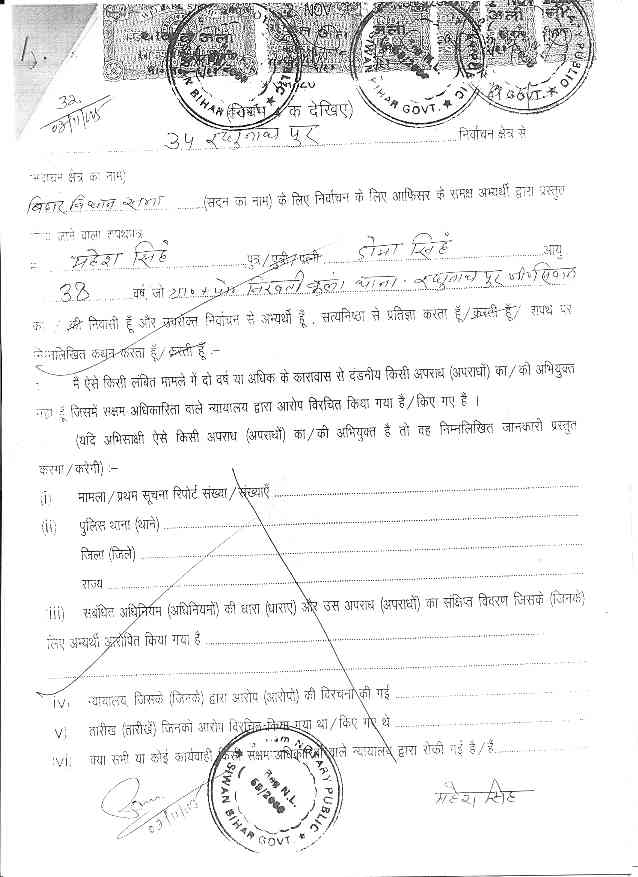 2 NOV
SIWAN BIHAR GOVT. ★ PUBLIC
BIHAR GOVT. ★
GOVT. ★ PUBLIC
1.
32
03/11/05
क देखिए)
34 रघुनाथ पुर निर्वाचन क्षेत्र से
क्षेत्र का नाम)
बिहार विधान सभा (सदन का नाम) के लिए निर्वाचन के लिए आफिसर के समक्ष अभ्यर्थी द्वारा प्रस्तुत
जाने वाला शपथपत्र
महेश सिंह पुत्र/पुत्री/पत्नी डोमा सिंह आयु
38 वर्ष, जो ग्रा० + पो० कला थाना - रघुनाथ पुर
की निवासी हूँ और उपरोक्त निर्वाचन से अभ्यर्थी हूँ, सत्यनिष्ठा से प्रतिज्ञा करता हूँ/करती हूँ/ शपथ पर
निम्नलिखित कथन करता हूँ/करती हूँ :-
मैं ऐसे किसी लंबित मामले में दो वर्ष या अधिक के कारावास से दंडनीय किसी अपराध (अपराधों) का/की अभियुक्त
नहीं हूँ जिसमें सक्षम अधिकारिता वाले न्यायालय द्वारा आरोप विरचित किया गया है/किए गए है ।
(यदि अभिसाक्षी ऐसे किसी अपराध (अपराधों) का/की अभियुक्त है तो वह निम्नलिखित जानकारी प्रस्तुत
करेगा/करेगी) :-
(i) मामला/प्रथम सूचना रिपोर्ट संख्या/संख्याएँ
(ii) पुलिस थाना (थाने)
जिला (जिले)
राज्य
iii) संबंधित अधिनियम (अधिनियमों) की धारा (धाराएं) और उस अपराध (अपराधों) का संक्षिप्त विवरण जिसके (जिनके)
लिए अभ्यर्थी आरोपित किया गया है
iv) न्यायालय, जिसके (जिनके) द्वारा आरोप (आरोपों) की विरचना की गई
v) तारीख (तारीखें) जिनको आरोप विरचित किया गया था/किए गए थे
vi) क्या सभी या कोई कार्यवाही किसी सक्षम अधिकारिता वाले न्यायालय द्वारा रोकी गई है/हैं
NOTARY PUBLIC ★ SIWAN BIHAR GOVT.
Reg N.L.
68/2000
03/11/05
महेश सिंह